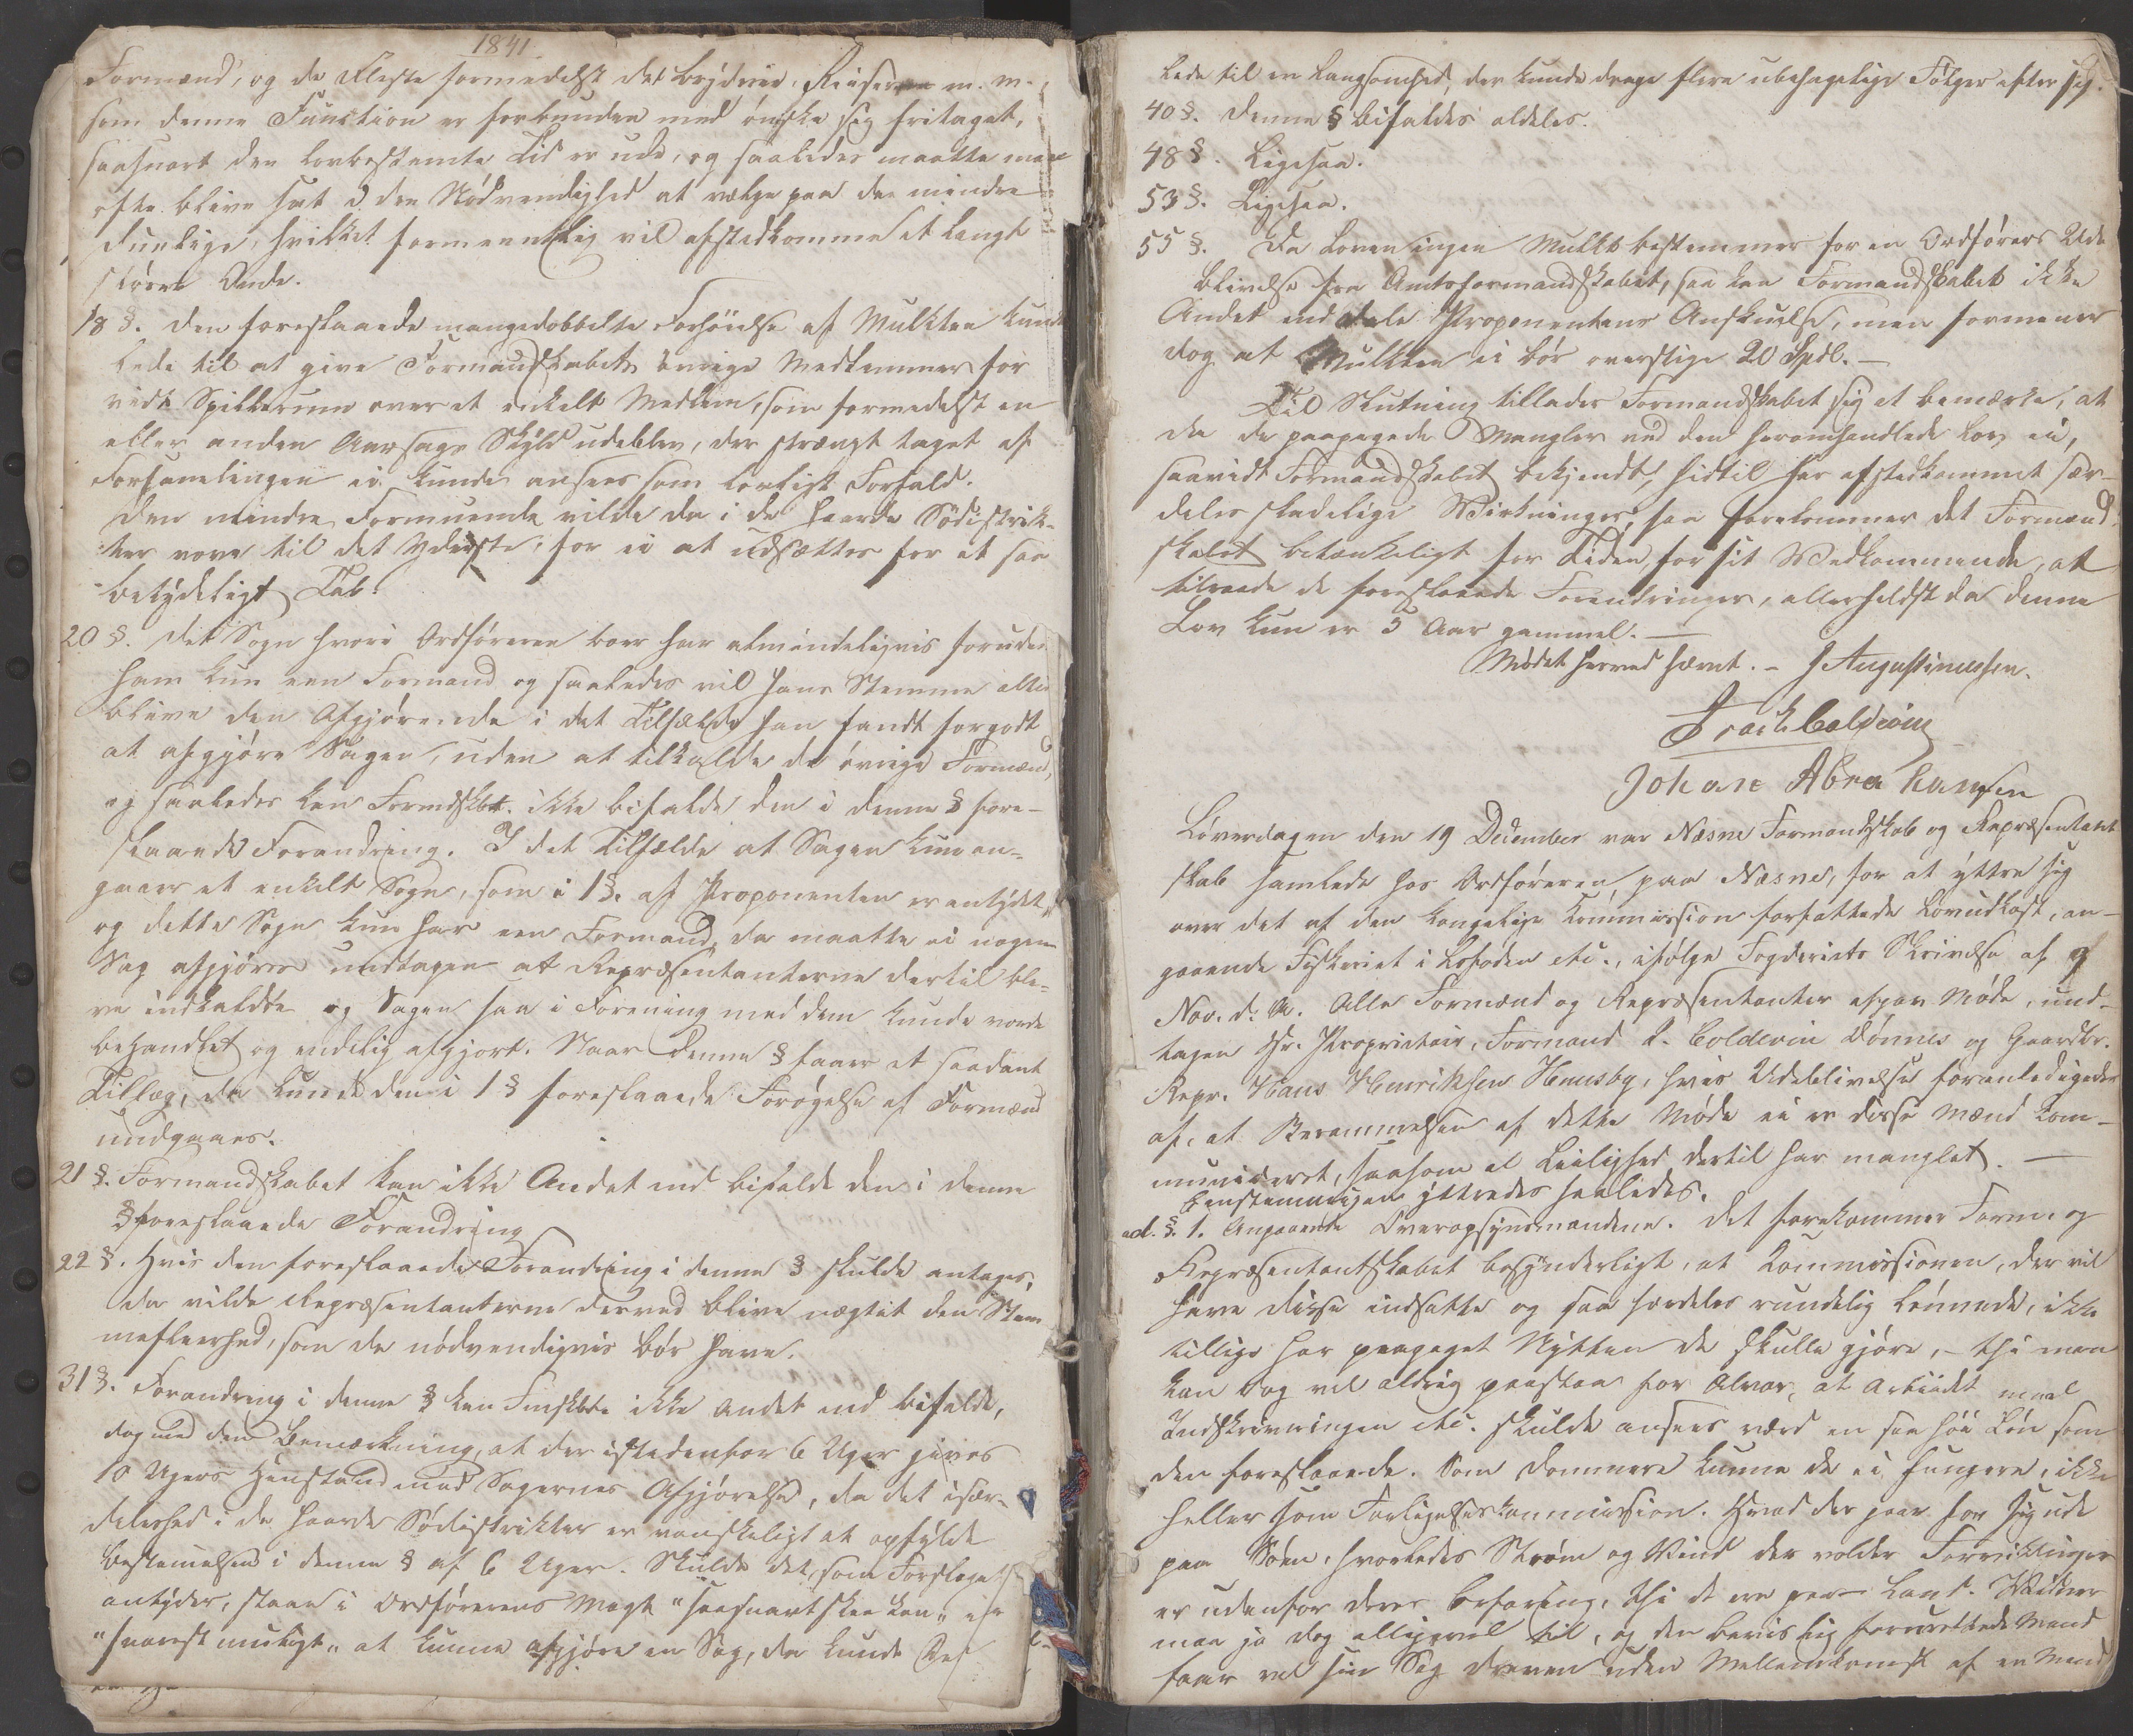 1841
Formænd, og de Fleste formedelst det Bryderie, Reiserne m. m.
som denne Function er forbunden med ønske sig fritaget,
saasnart den lovbestemte Tid er ude, og saaledes maatte man
ofte blive sat i den Nødvendighed at vælge paa den mindre
duelige, hvilket formeentlig vil afstedkomme et langt
større Onde.
18 §. Den foreslaaede mangedobbelte Forhøielse af Mulkten kunde
lede til at give Formandskabets øvrige Medlemmer for
vidt Spillerum over et enkelt Medlem, som formedelst en
eller anden Aarsags Skyld udeblev, der strængt taget af
Forsamlingen ei kunde ansees som lovligt Forfald.
Den mindre Formuende vilde da i de haarde Södistrik-
ter vove til det Yderste, for ei at udsættes for et saa
betydeligt Tab.
20 §. Det Sogn hvori Ordføreren boer har almindeligviis foruden
ham kun een Formand og saaledes vil hans Stemme altid
blive den Afgjørende i det Tilfælde han fandt forgodt
at afgjøre Sagen, uden at tilkalde de øvrige Formænd,
og saaledes kan Formdskbt. ikke bifalde den i denne § fore-
slaaede Forandring. I det Tilfælde at Sagen kun an-
gaaer et enkelt Sogn, som i 1 §. af Proponenten er antydet,
og dette Sogn kun har een Formand, da maatte ei nogen
Sag afgjøres undtagen at Repræsentanterne dertil ble-
ve indkaldte og Sagen saa i Forening med dem kunde vorde
behandlet og endelig afgjort. Naar denne § faaer et saadant
Tillæg, da kunde den i 1 § foreslaaede Forøgelse af Formænd
undgaaes.
21 §. Formandskabet kan ikke Andet end bifalde den i denne
§ foreslaaede Forandring
22 §. Hvis den foreslaaede Forandring i denne § skulde antages,
da vilde Repræsentanterne derved blive nægtet den Stem
mefleerhed, som de nødvendigviis bør have.
31 §. Forandring i denne § kan Fmskbt. ikke andet end bifalde,
dog med den Bemærkning, at der istedenfor 6 Uger gives
10 Ugers Henstand med Sagernes Afgjørelse, da det især-
deleshed i de haarde Södistrikter er vanskeligt at opfylde
Bestemelsen i denne § af 6 Uger. Skulde det, som Forslaget
antyder, staae i Ordførerens Magt "saasnart skee kan" eller
"snarest muligt" at kunne afgjøre en Sag, da kunde Det
lede til en Langsomhed, der kunde drage flere ubehagelige Følger efter sig.
40 §. Denne § bifaldes aldeles.
48 §. Ligesaa.
53 §. Ligesaa.
55 §. Da Loven ingen Mulkt bestemmer for en Ordførers Ude
blivelse fra Amtsformandskabet, saa kan Formandskabet ikke
Andet end dele Proponentens Anskuelse, men formener
dog at Mulkten ei bør overstige 20 Spdl. —
Til Slutning tillader Formandskabet sig at bemærke, at
da de paapegede Mangler ved den heromhandlede Lov ei,
saavidt Formandskabet bekjendt, hidtil har afstedkommet sær-
deles skadelige Wirkninger, saa forekommer det Formand
skabet betænkeligt for Tiden, for sit Wedkommende, at
tilraade de foreslaaede Forandringer, allerhelst da denne
Lov kun er 5 Aar gammel. —
Mødet herved hævet. – J Augustinussen.
Coldevin
Johan Abrahamsen
Löverdagen den 19 December var Næsne Formandskab og Repræsentant
skab samlede hos Ordføreren paa Næsne, for at yttre sig
over det af den kongelige Commission forfattede Lovudkast, an-
gaaende Fiskeriet i Lofoden etc., ifølge Fogderiets Skrivelse af 9
Nov. d. A. Alle Formænd og Repræsentanter afgav Møde, und-
tagen Hr. Proprietair, Formand I. Coldevin Dønnes og Gaardbr.
Repr. Hans Henriksen Huusby, hvis Udeblivelse foranledigedes
af, at Berammelsen af dette Møde ei er disse Mænd kom-
municeret, saasom al Leilighed dertil har manglet. —
Eenstemmigen yttredes saaledes.
ad. §. 1. Angaaende Overopsynsmændene. Det forekommer Form. og
Repræsentantskabet besynderligt, at Kommissionen, der vil
have disse indsatte og saa særdeles rundelig lønnede, ikke
tillige har paapeget Nytten de skulle gjøre, – thi man
kan dog vel aldrig paastaa for Alvor, at Arbeidet med
Indskrivningen etc. skulde ansees værd en saa høi Løn som
den foreslaaede. Som Dommere kunne de ei fungere, ikke
heller som Forligelseskommission. Hvad der gaar for sig ude
paa Søen, hvorledes Strøm og Vind der volder Forviklinger
er udenfor deres Erfaring, thi de ere paa Land. Vidner
maa jo dog alligevel til, og den beviislig forurettede Mand
faar vel sin Sag dreven uden Mellemkomst af en Mand